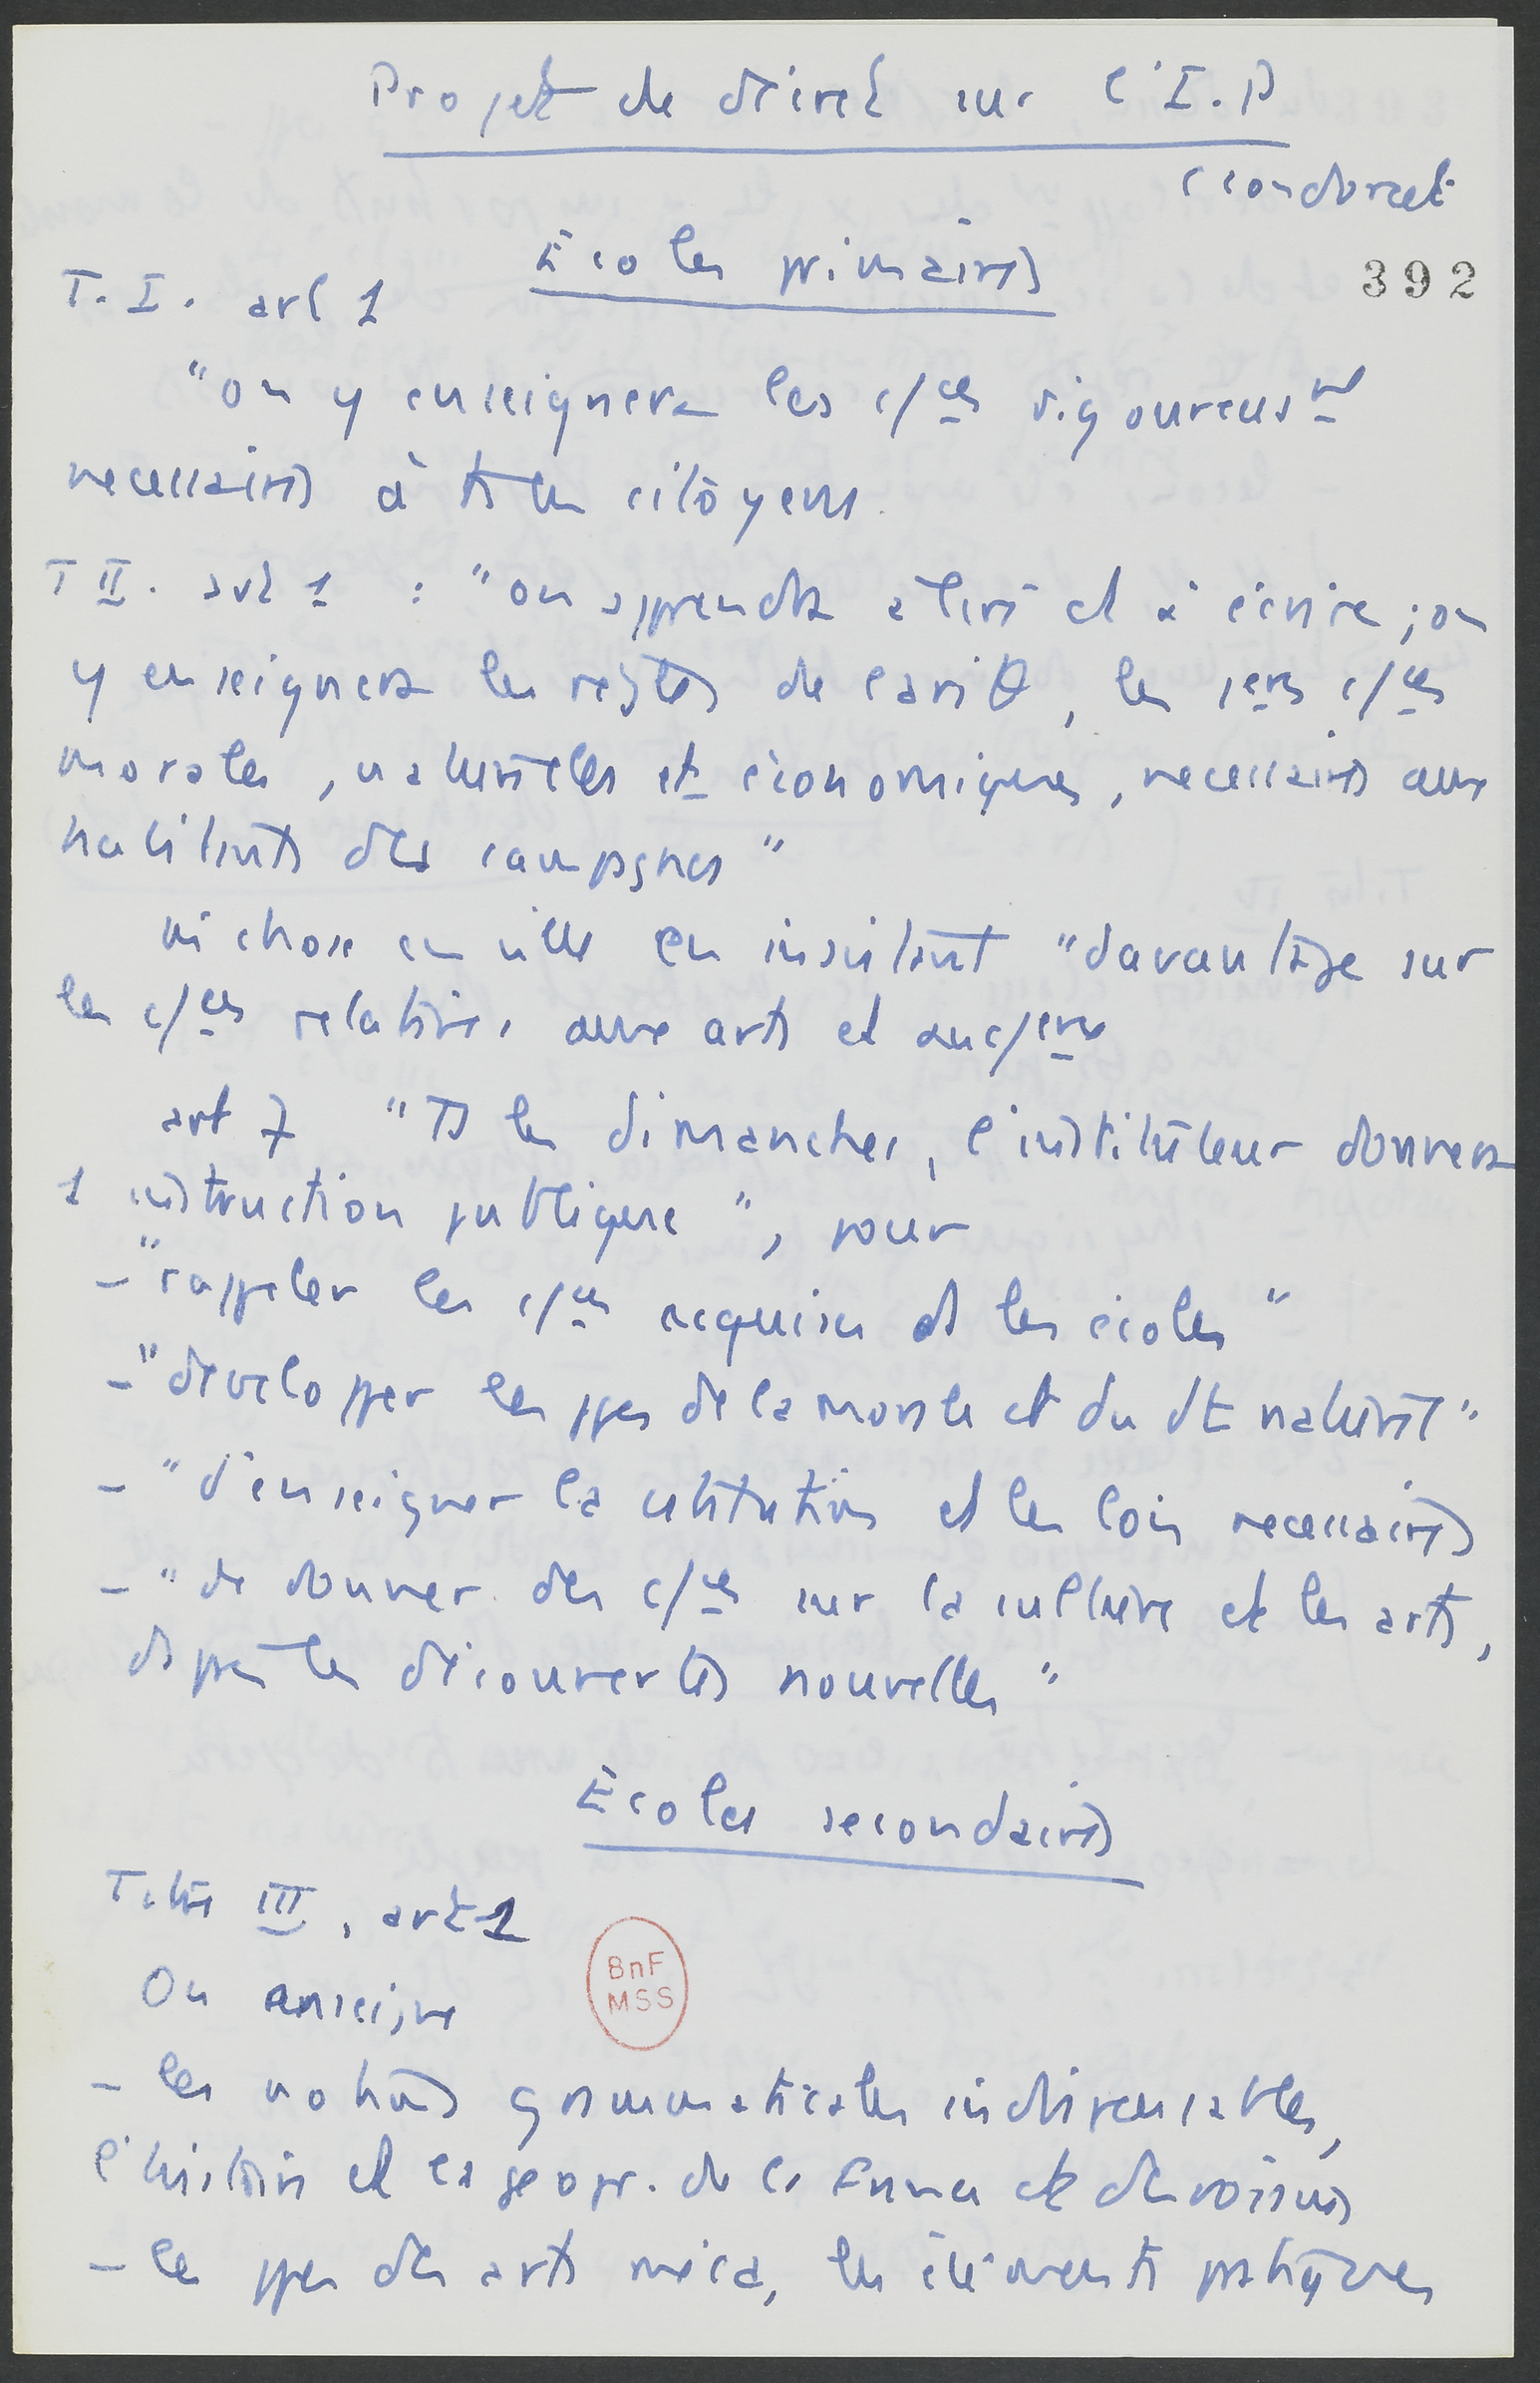 Projet de décret sur l'I.P
(Condorcet
Écoles primaires
392
T.I. art 1
"on y enseignera les c/ces rigoureusmt
necessaires à ts les citoyens.
T II. art 1 : "on apprendra a lire et à écrire ; on
y enseignera les regles de l'arithm, les 1ers c/ces
morales, naturelles et économiques, necessaires aux
habitants des campagnes"
m chose en ville en insistant "davantage sur
les c/ces relatives aux arts et au c/erce
art 7 "Ts les dimanches, l'instituteur donnera
1 instruction publique", pour
- "rappeler les c/ces acquises ds les écoles"
- "developper les ppes de la morale et du dt naturel"
- "d'enseigner la cstitution et les lois necessaires
- "de donner des c/ces sur la culture et les arts,
d'après les découvertes nouvelles"
Écoles secondaires
Titre III, art 1
On enseigne
- les notions grammaticales indispensables,
l'histoire et la géogr. de la France et des voisins
- les ppes des arts méca, les éléments pratiques
BnF
MSS